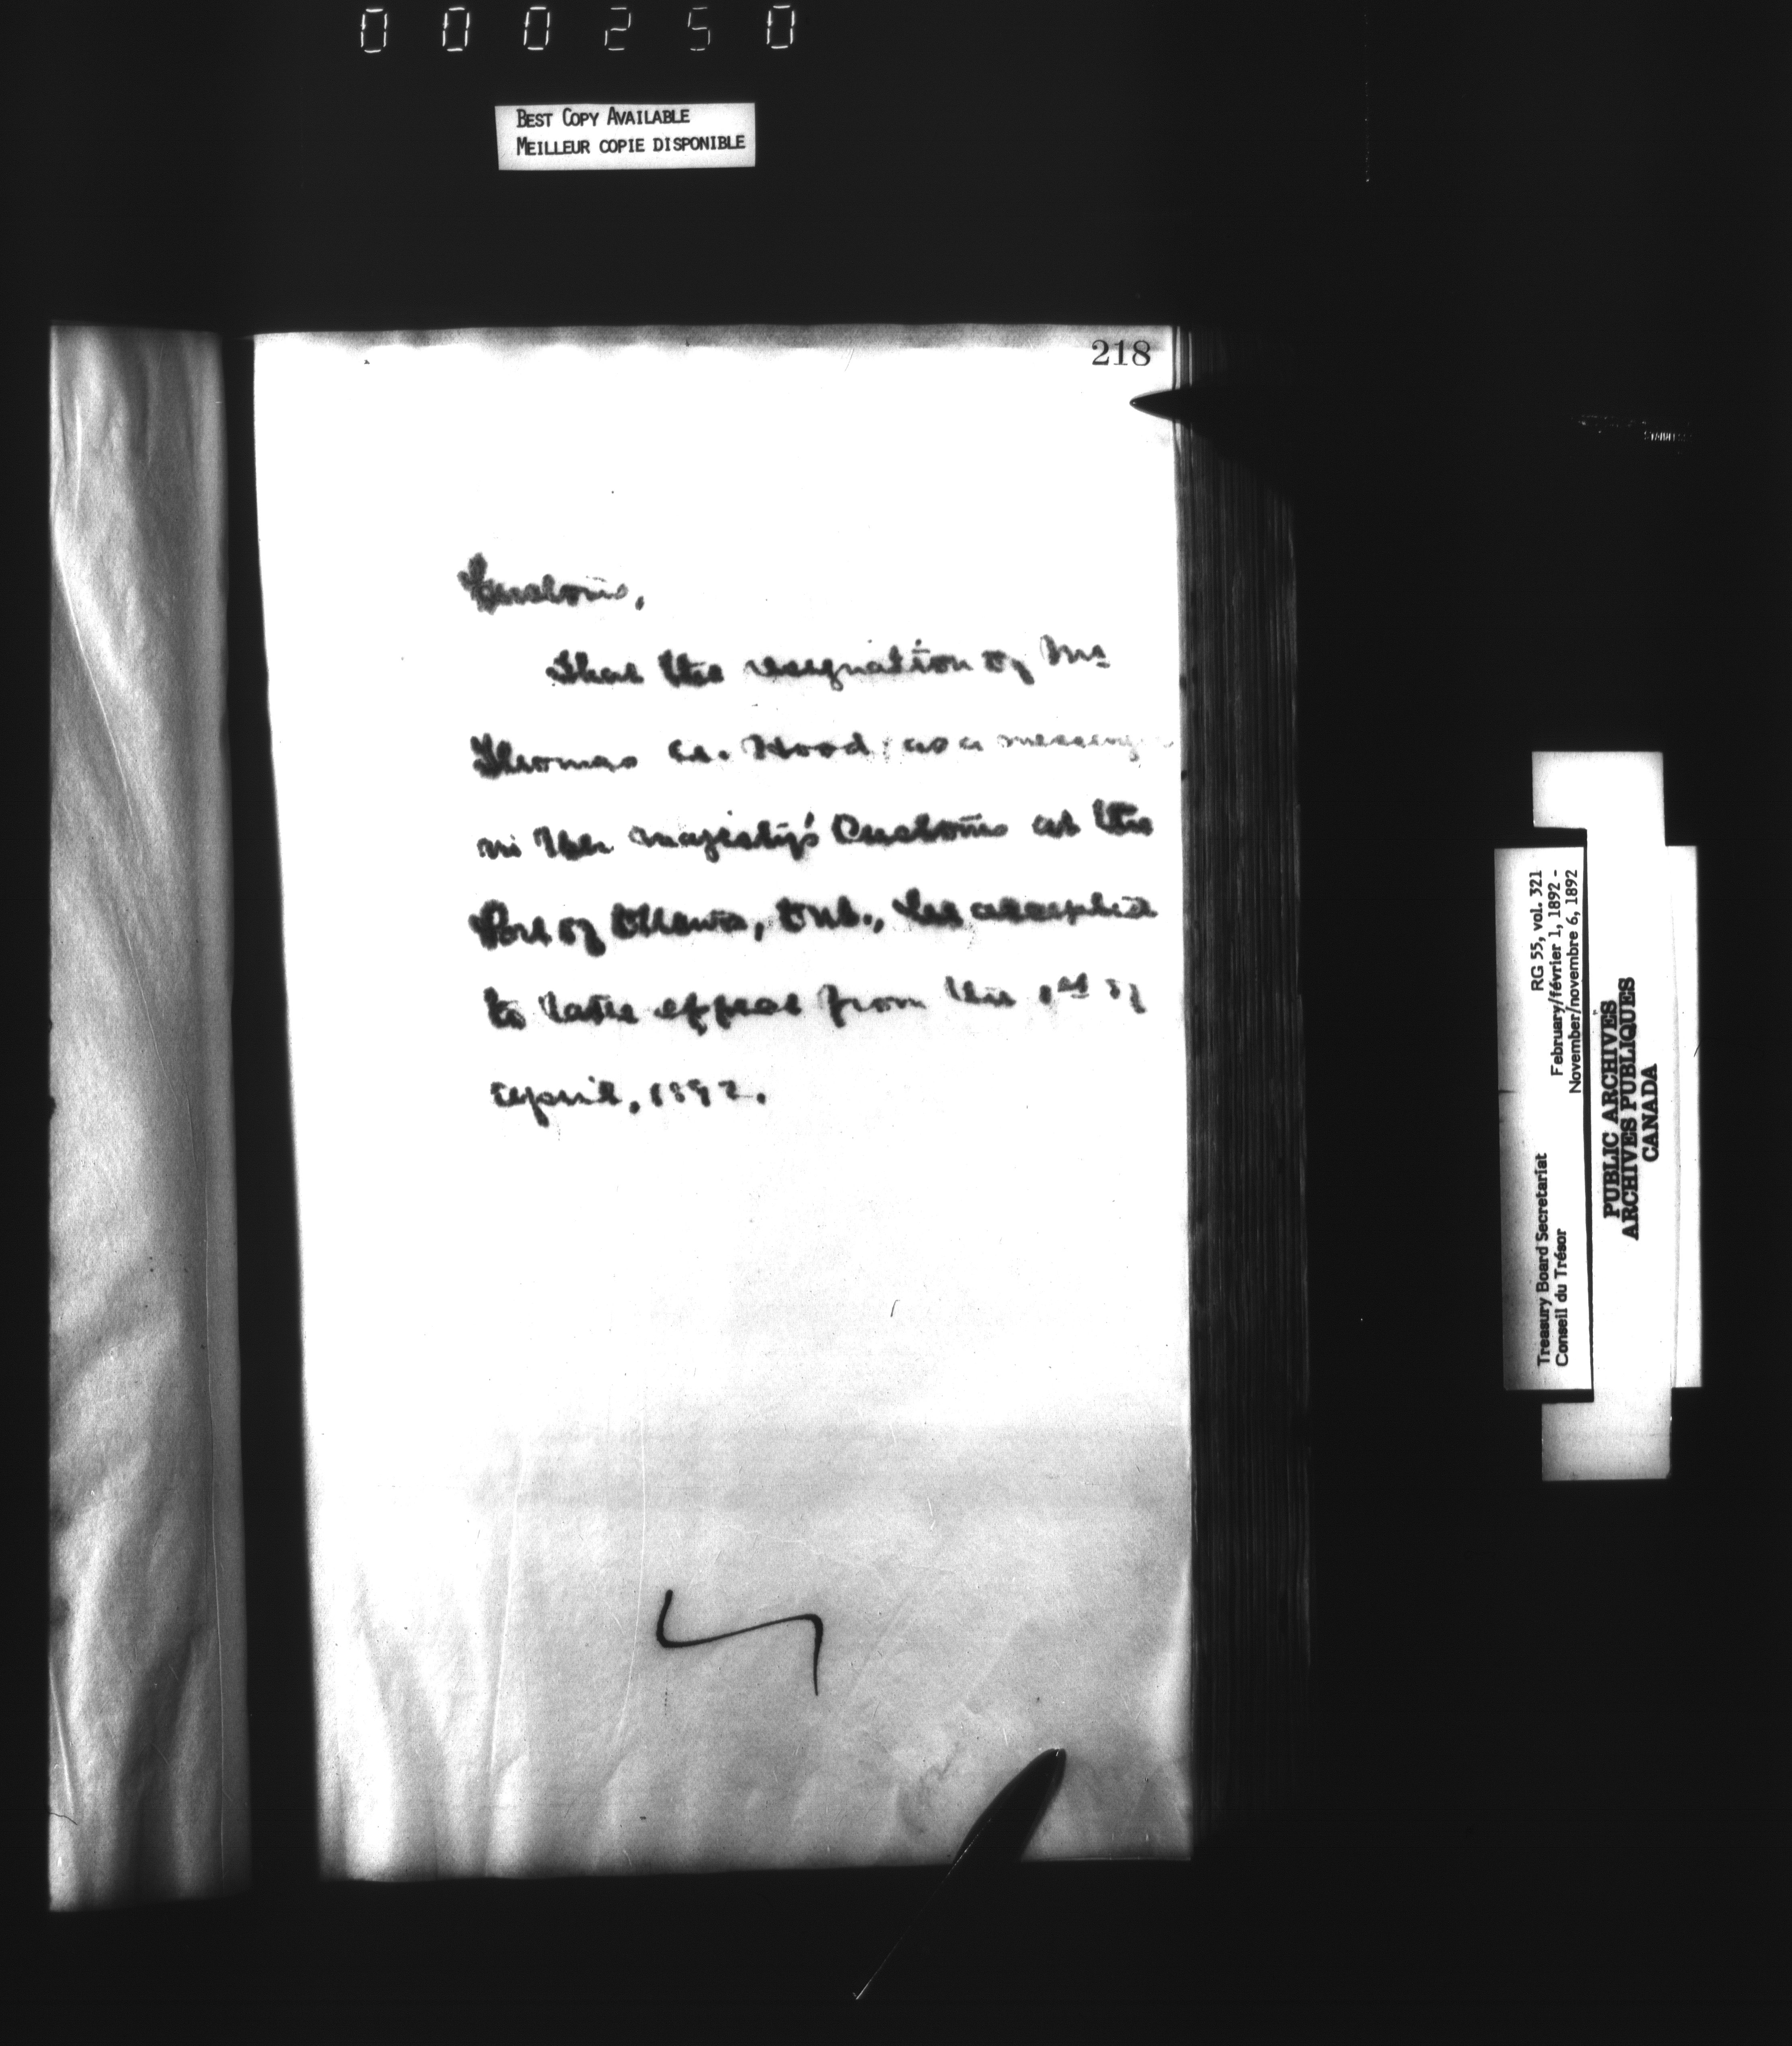 000250
BEST COPY AVAILABLE
MEILLEUR COPIE DISPONIBLE
218
Customs,
That the resignation of Mr
Thomas A. Hood, as a messeng
in Her Majesty's Customs at the
Port of Ottawa, Ont., be accepted
to take effect from the 1st of
April, 1892.
Treasury Board Secretariat RG 55, vol. 321
Conseil du Trésor February/février 1, 1892 -
November/novembre 6, 1892
PUBLIC ARCHIVES
ARCHIVES PUBLIQUES
CANADA